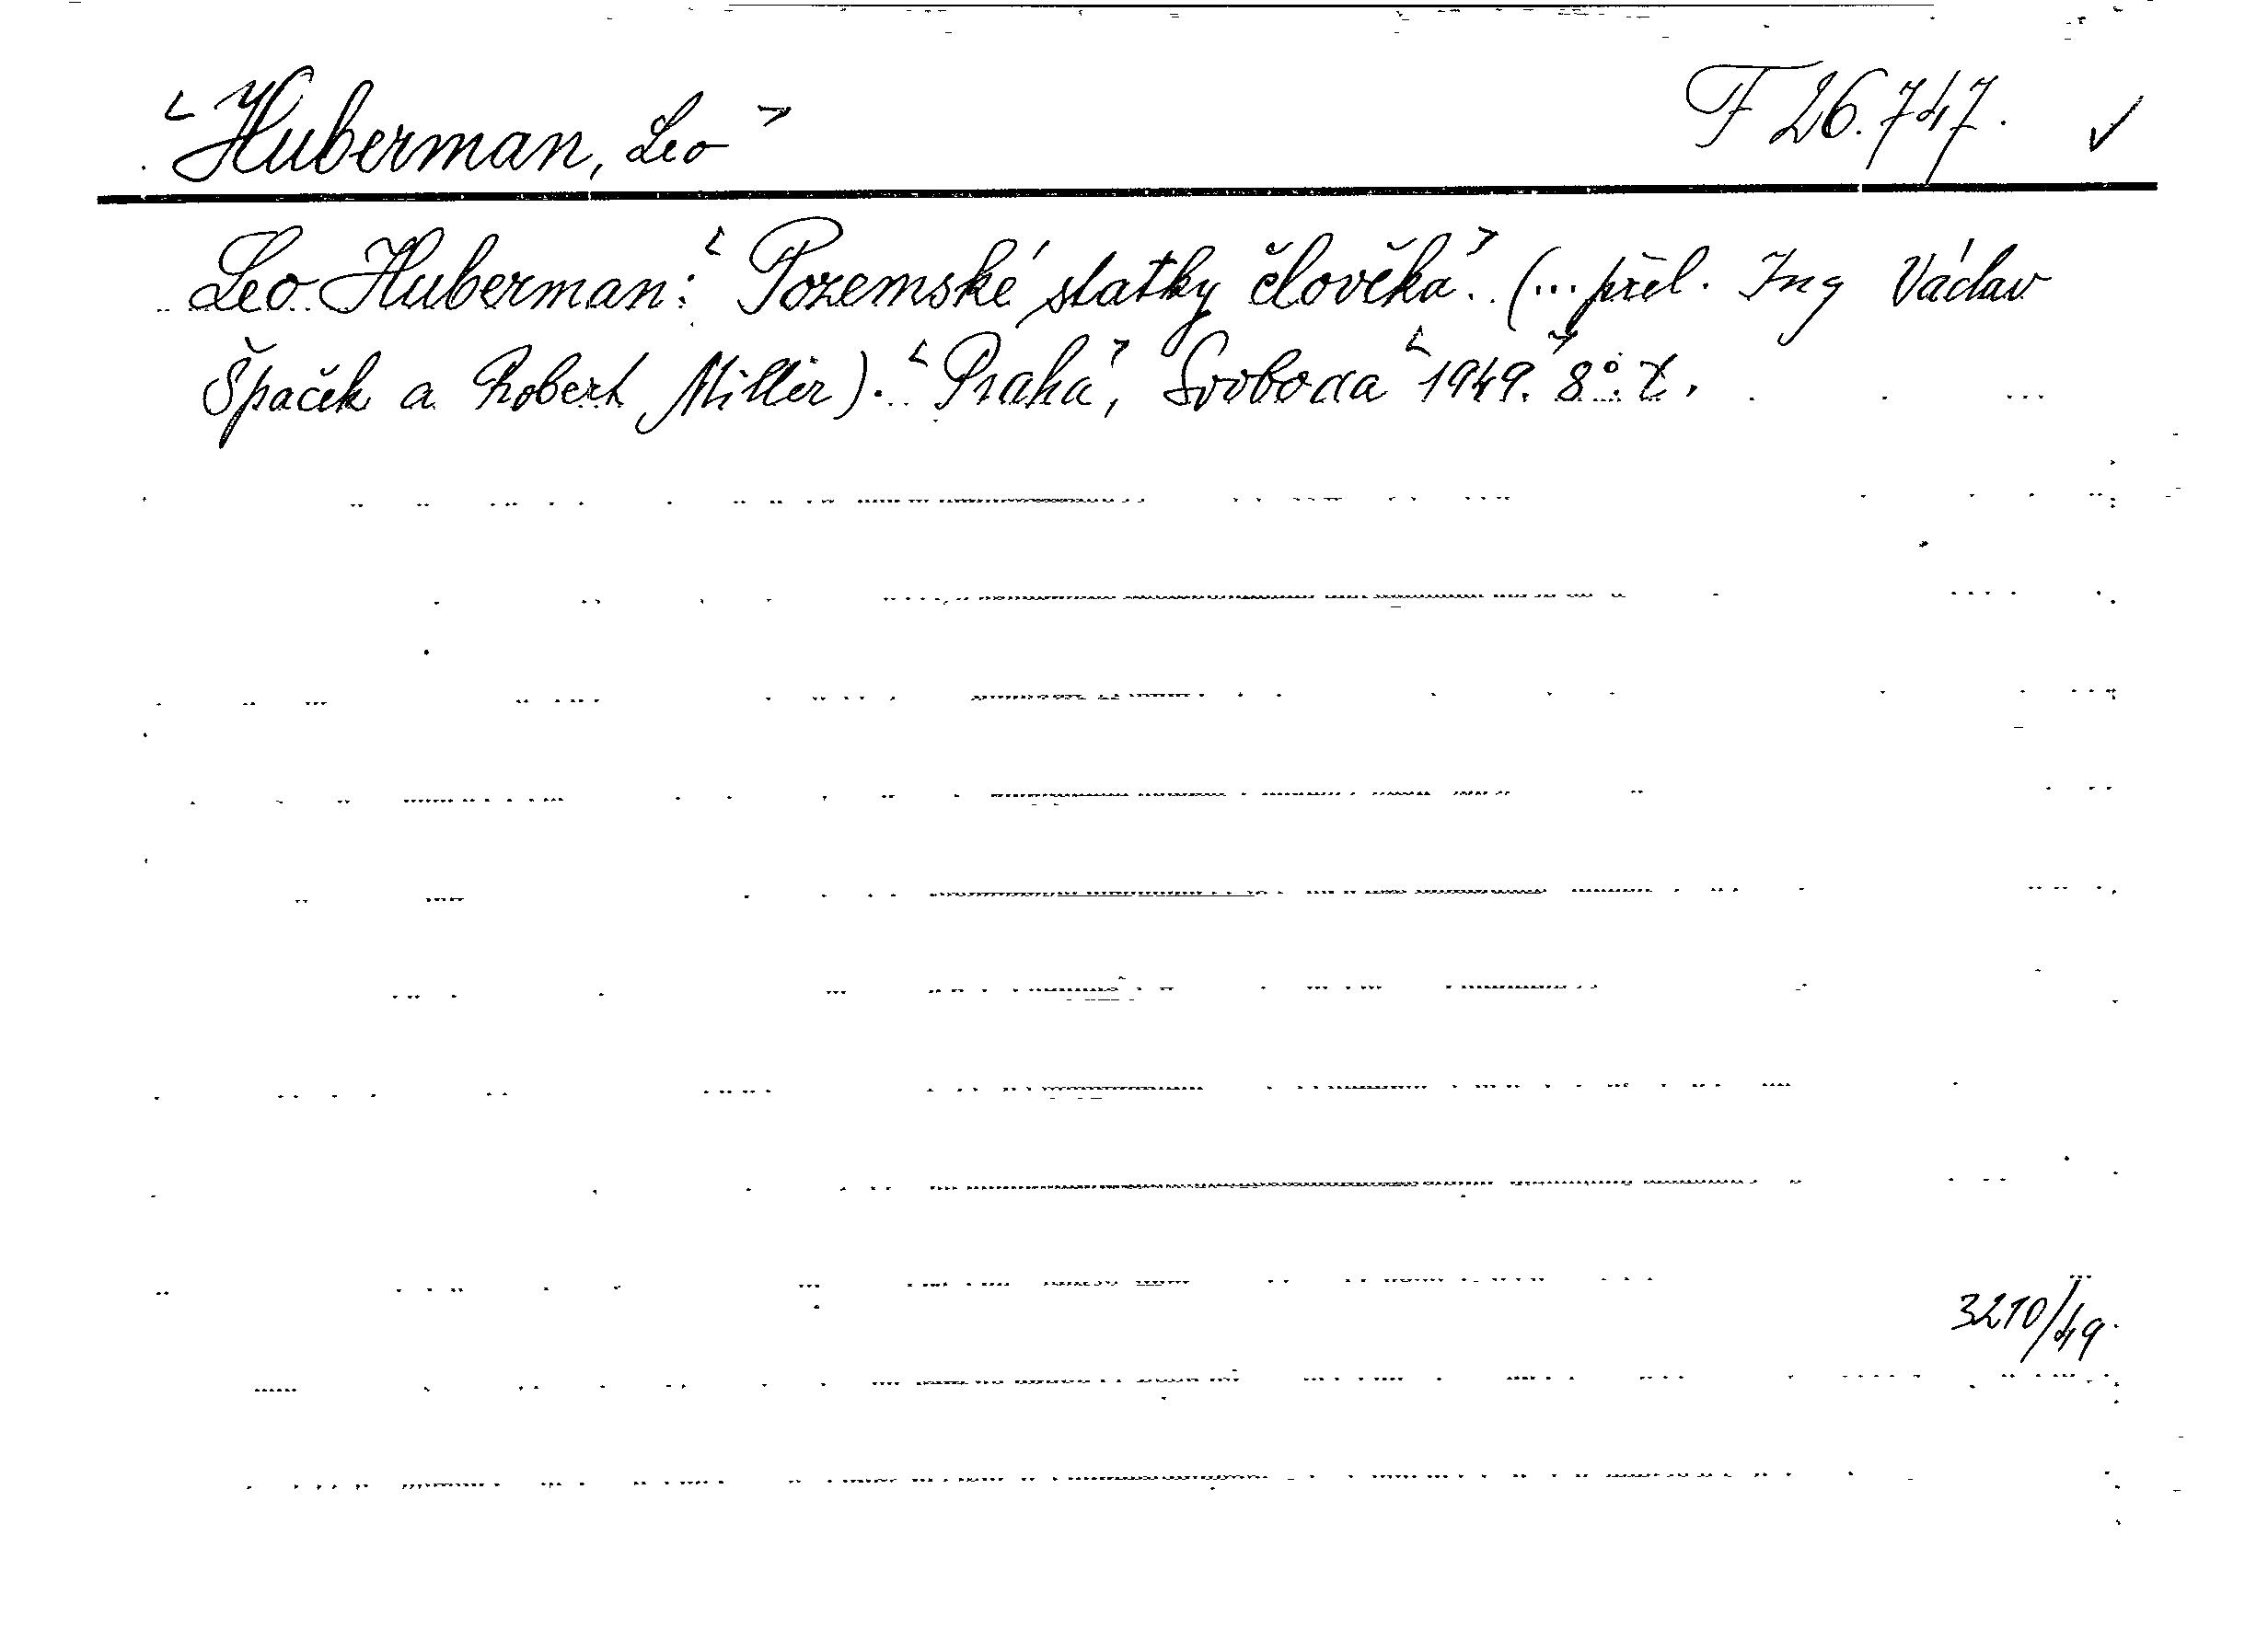 <Huberman, Leo> F 26.747. ✓
Leo Huberman: <Pozemské statky člověka>. (... přel. Ing Václav
Špaček a Robert Miller). <Praha>, Svoboda <1949.> 8°. Z.
3210/49.